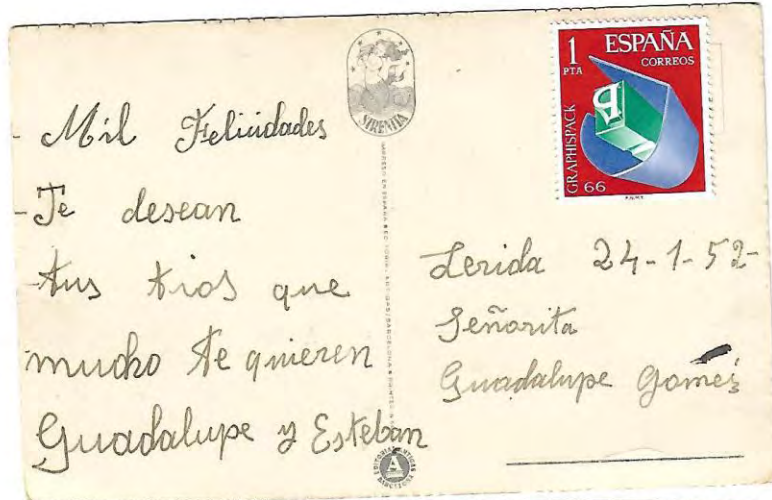 Mil Felicidades
-Te desean
tus tios que
mucho te quieren
Guadalupe y Esteban
SIRENITA
1 PTA ESPAÑA
CORREOS
GRAPHISPACK
66
Lerida 24-1-52-
Señorita
Guadalupe Gomés
A